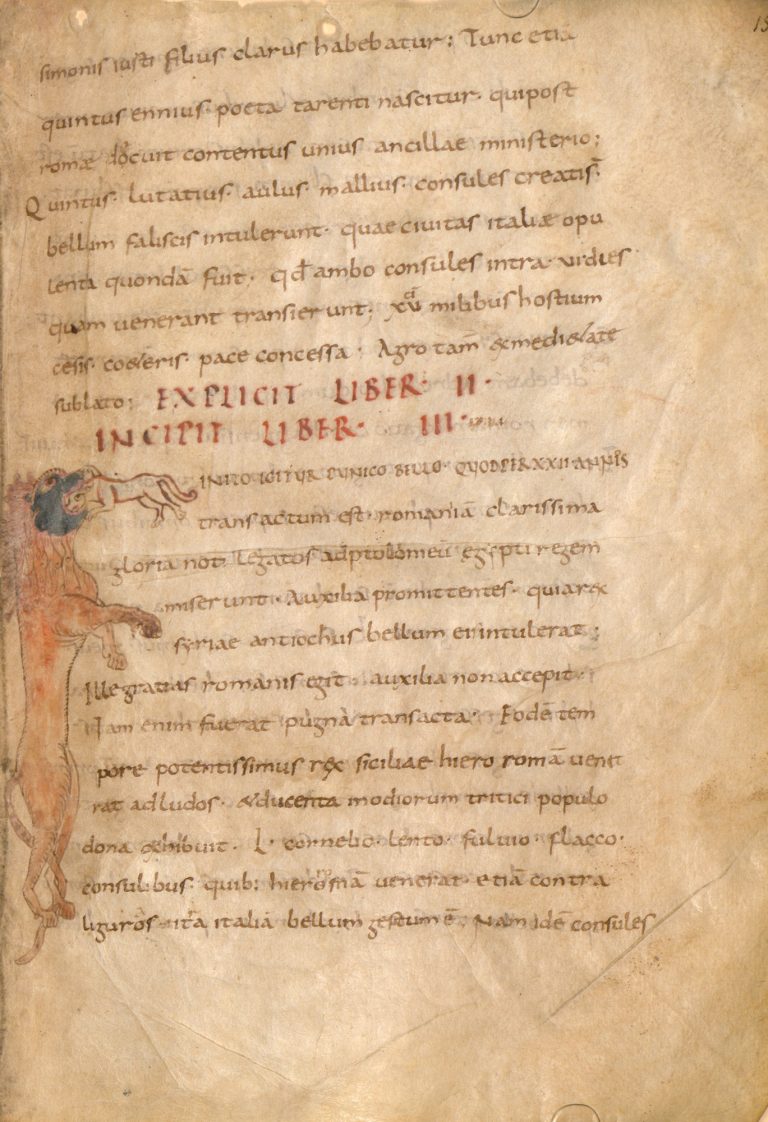 simonis iusti filius clarus habebatur; Tunc etiā
quintus ennius poeta tarenti nascitur· quipost
romæ docuit contentus unius ancillae ministerio;
Quintus· lutatius· aulus· mallius· consules creatis
bellum faliscis intulerunt· quae civitas italiæ opu
lenta quondā fuit· qd ambo consules intra· vi·dies
quam venerant transierunt; xv milibus hostium
cesis· co&eris· pace concessa· Agro tam̄ &medi&ate
sublato; EXPLICIT LIBER· II·
INCIPIT LIBER· III·
INITO IGITUR PUNICO BELLO· QUODPERXXII·ANNIS
transactum est· romaniā clarissima
gloria not· legatos adptolomeū egypti regem
miserunt· Auxilia promittentes· quiarex
syriae antiochus bellum eiintulerat;
Ille gratias romanis egit· auxilia non accepit·
Iam enim fuerat pugna transacta· Eodē tem
pore potentissimus rex siciliae hiero romā vene
rat adludos· &ducenta modiorum tritici populo
dona exhibuit· L· cornelio· lento· fulvio· flacco·
consulibus quib; hiero romā venerat· etiā contra
liguros· itra italiā bellum gestum ē· Nam idē consules